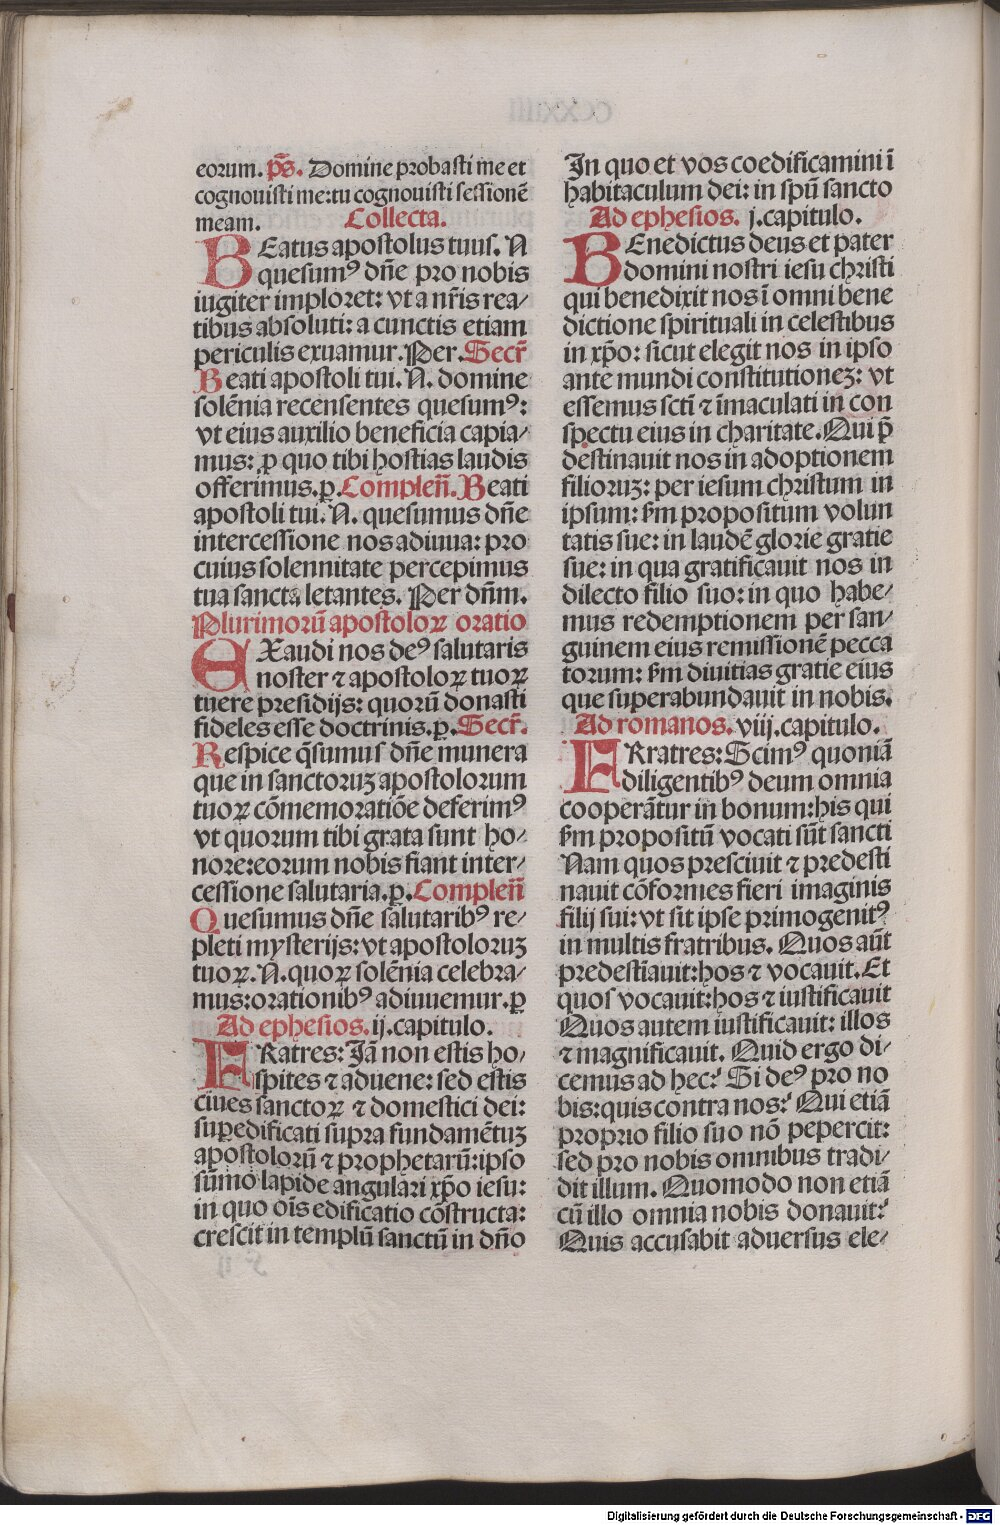 eorum. p̄s. Domine probasti me et
cognouisti me:tu cognouisti sessionē
meam. Collecta.
BEatus apostolus tuus. N
quesumꝰ dn̄e pro nobis
iugiter imploret: vt a nr̄is rea/
tibus absoluti: a cunctis etiam
periculis exuamur. Per. Secr̄
Beati apostoli tui. N. domine
solēnia recensentes quesumꝰ:
vt eius auxilio beneficia capia/
mus: ꝑ quo tibi hostias laudis
offerimus.ꝑ. Complen̄. Beati
apostoli tui. N. quesumus dn̄e
intercessione nos adiuua: pro
cuius solennitate percepimus
tua sancta letantes. Per dn̄m.
Plurimorū apostoloꝝ oratio
EXaudi nos deꝰ salutaris
noster ⁊ apostoloꝝ tuoꝝ
tuere presidijs: quorū donasti
fideles esse doctrinis.ꝑ. Secr̄.
Respice q̄sumus dn̄e munera
que in sanctoruꝫ apostolorum
tuoꝝ cōmemoratiōe deferimꝰ
vt quorum tibi grata sunt ho/
nore:eorum nobis fiant inter/
cessione salutaria.ꝑ. Complen̄
Quesumus dn̄e salutaribꝰ re/
pleti mysterijs: vt apostoloruꝫ
tuoꝝ. N. quoꝝ solēnia celebra/
mus:orationibꝰ adiuuemur.ꝑ
Ad ephesios. ij.capitulo.
FRatres: Jā non estis ho/
spites ⁊ aduene: sed estis
ciues sanctoꝝ ⁊ domestici dei:
suꝑedificati supra fundamētuꝫ
apostolorū ⁊ prophetarū:ipso
sūmo lapide angulari xp̄o iesu:
in quo oīs edificatio cōstructa:
crescit in templū sanctū in dn̄o
In quo et vos coedificamini ī
habitaculum dei: in spū sancto
Ad ephesios. j.capitulo.
BEnedictus deus et pater
domini nostri iesu christi
qui benedixit nos ī omni bene
dictione spirituali in celestibus
in xp̄o: sicut elegit nos in ipso
ante mundi constitutioneꝫ: vt
essemus sctī ⁊ īmaculati in con
spectu eius in charitate. Qui p̄
destinauit nos in adoptionem
filioruꝫ: per iesum christum in
ipsum: ẜm propositum volun
tatis sue: in laudē glorie gratie
sue: in qua gratificauit nos in
dilecto filio suo: in quo habe/
mus redemptionem per san/
guinem eius remissionē pecca
torum: ẜm diuitias gratie eius
que superabundauit in nobis.
Ad romanos. viij.capitulo.
FRratres: Scimꝰ quoniā
diligentibꝰ deum omnia
cooperātur in bonum:his qui
ẜm propositū vocati sūt sancti
Nam quos presciuit ⁊ predesti
nauit cōformes fieri imaginis
filij sui: vt sit ipse primogenitꝰ
in multis fratribus. Quos aūt
predestīauit:hos ⁊ vocauit. Et
quos vocauit:hos ⁊ iustificauit
Quos autem iustificauit: illos
⁊ magnificauit. Quid ergo di/
cemus ad hec? Si deꝰ pro no
bis:quis contra nos? Qui etiā
proprio filio suo nō pepercit:
sed pro nobis omnibus tradi/
dit illum. Quomodo non etiā
cū illo omnia nobis donauit?
Quis accusabit aduersus ele/
Digitalisierung gefördert durch die Deutsche Forschungsgemeinschaft - DFG